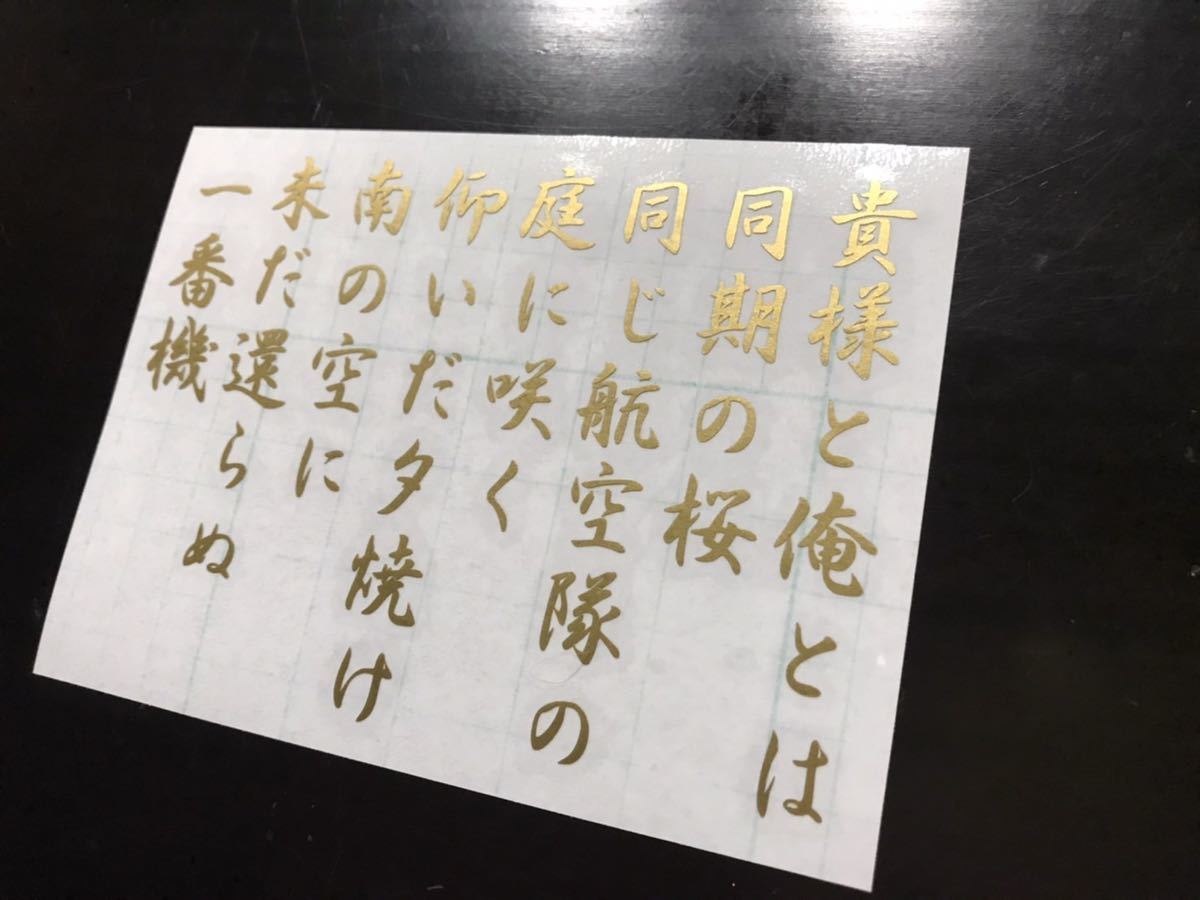 貴様と俺とは
同期の桜
同じ航空隊の
庭に咲く
仰いだ夕焼け
南の空に
未だ還らぬ
一番機